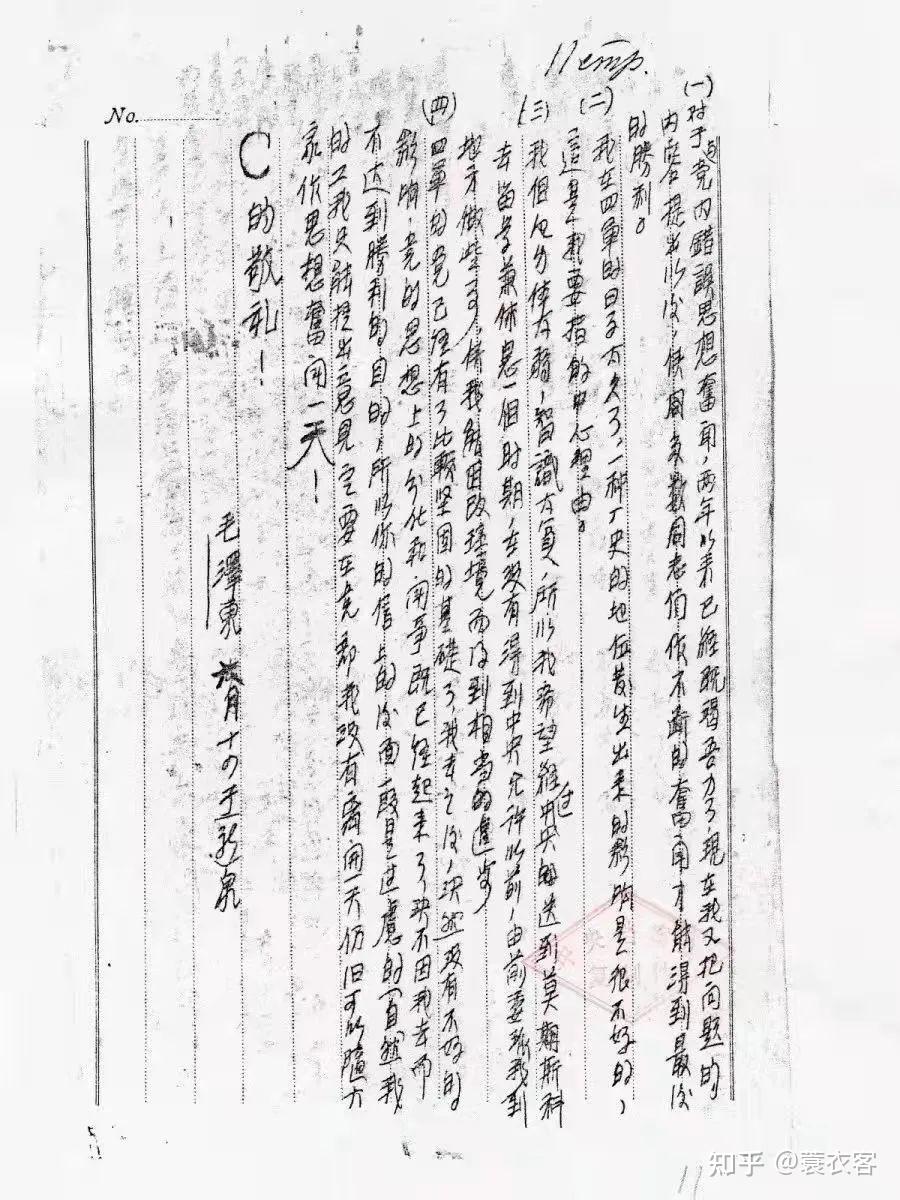 11 cmp.
No.
(一)对于与党内錯誤思想奮鬥,两年以来已經竭吾力了,現在我又把问題的
内容提出以後,使同多數同志們作不断的奮鬥才能得到最後
的勝利。
(二)我在四軍的日子太久了,一种歷史的地位发生出来的影响是很不好的,
這是我要指的中心理由。
(三)我個人身体太弱,智識太貧,所以我希望經过中央送到莫斯科
去留学兼休息一個时期,在没有得到中央允許以前,由前委派我到
地方做些事,使我能因改環境而得到相当的進步
(四)四軍的党已經有了比較坚固的基礎了,我去之後,决然没有不好的
影响,党的思想上的分化和鬥争既已經起来了,决不因我去而
不达到勝利的目的,所以你的信上的後面一段是过慮的(自然我
的工我只能提出意見定要在党部我没有离開一天仍旧可以隨大
家作思想奮鬥一天!
C的敬礼!
毛澤東 六月十四于新泉
11
知乎 @蓑衣客